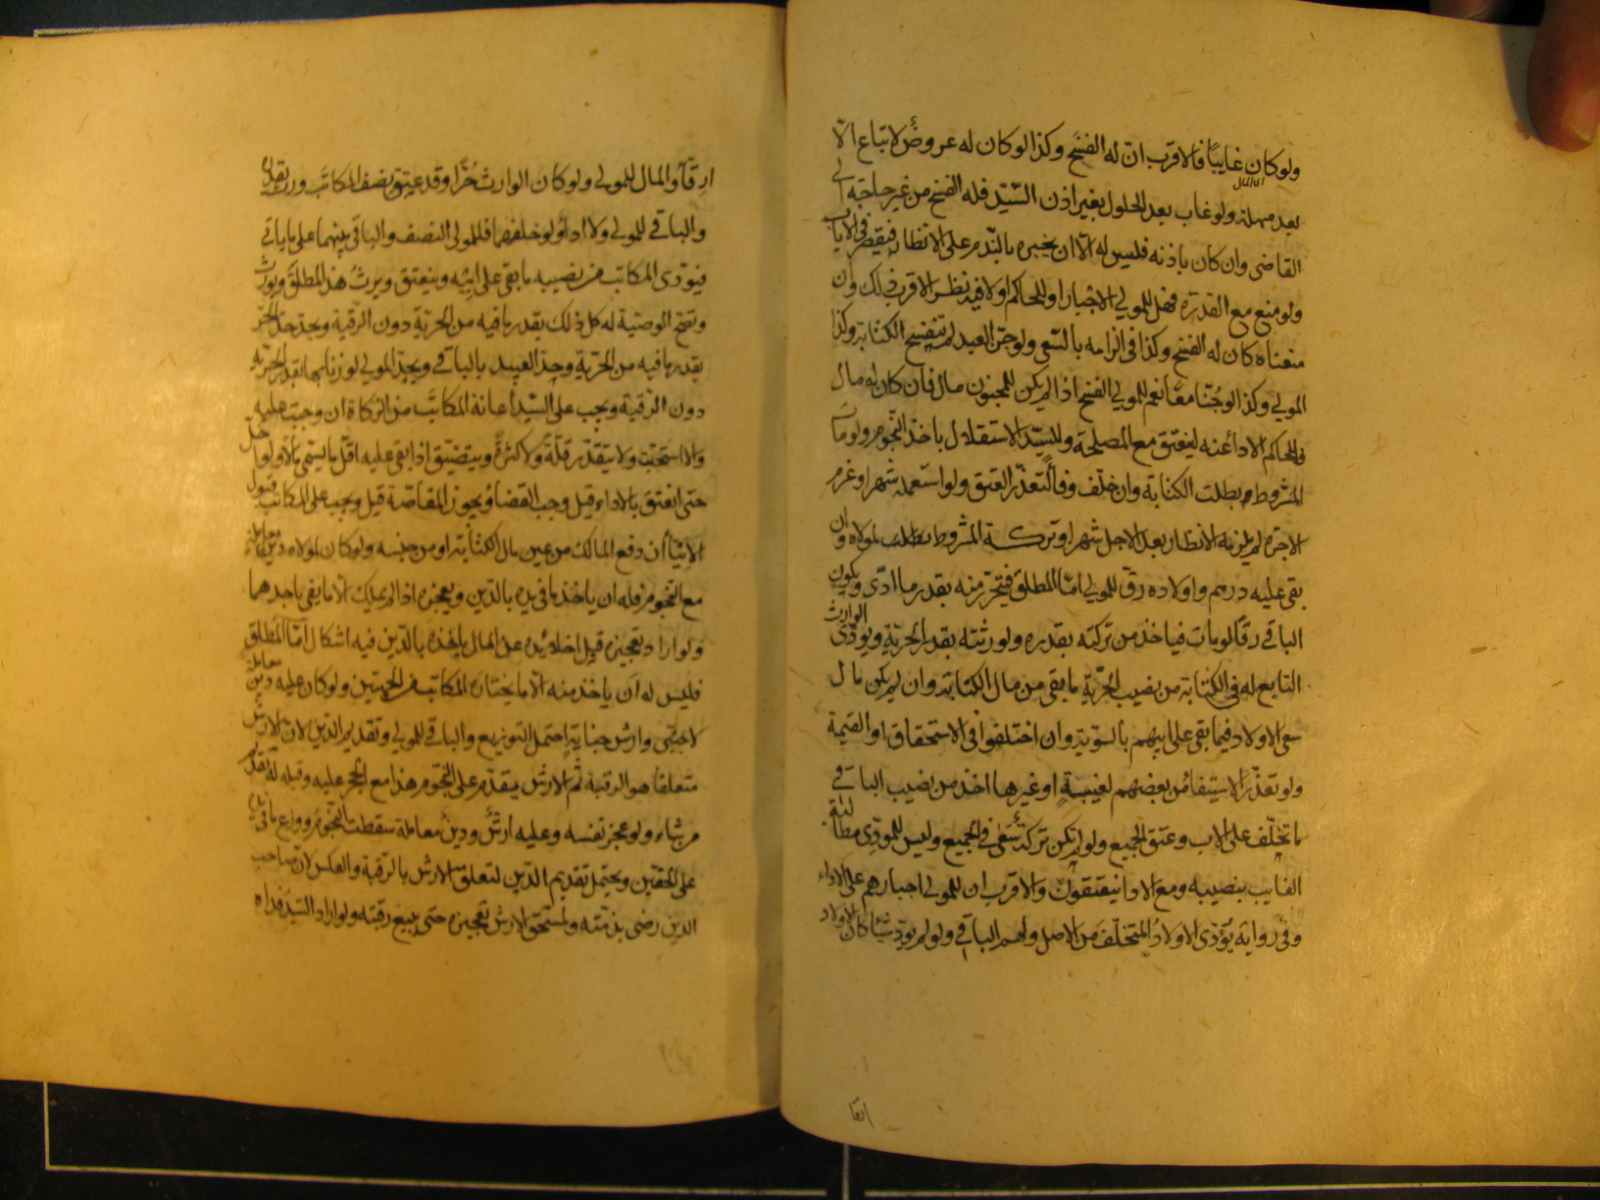 ولو كان غايبًا فالاقرب ان له الفسخ وكذا لو كان له عروض لا تباع الّا
بعد مهلة ولو غاب بعد الحلول بغير اذن السّيّد فله الفسخ من غير حاجة الى
القاضى وان كان باذنه فليس له الّا ان يخبره بالنّدم على الانظار فيقصر فى الاياب
ولو منع مع القدرة فهل للمولى الاجبار او للحاكم اولا فيه نظر الاقرب ذلك وان
منعناه كان له الفسخ وكذا فى الزامه بالسّعى ولو جنّ العبد لم تنفسخ الكتابة وكذا
المولى وكذا لو جُنّا معًا نعم للمولى الفسخ اذا لم يكن للمجنون مال فان كان له مال
فللحاكم الاداء عنه ليعتق مع المصلحة وللسيّد الاستقلال باخذ النّجوم ولو مات
المشروط بطلت الكتابة وان خلّف وفاءً لتعذّر العتق ولو استعمله شهرا وغرم
الاجرة لم يلزمه الانظار بعد الاجل شهرا وتركة المشروط لمولاه وان
بقى عليه درهم واولاده رقّ للمولى امّا المطلق فيتحرّر منه بقدر ما ادّى ويكون
الباقى رقًا لو مات فياخذ من تركته بقدره ولورثته بقدر الحرّية ويؤدّى الوارث
التابع له فى الكتابة من نصيب الحرّية ما بقى من مال الكتابة وان لم يكن مال
سعى الاولاد فيما بقى على ابيهم بالسويّة وان اختلفوا فى الاستحقاق او القيمة
ولو تعذّر الاستيفاء من بعضهم لغيبة او غيرها اخذ من نصيب الباقى
ما تخلّف على الاب وعتق الجميع ولو لم تكن تركة سعى فى الجميع وليس للمودّى مطالبة
الغايب بنصيبه ومع الاداء ينعتقون والاقرب ان للمولى اجبارهم على الاداء
وفى رواية يؤدّى الاولاد المتخلّف من الاصل ولهم الباقى ولو لم يودّ شيئا كان الاولاد
ارقا
ارقّاءً والمال للمولى ولو كان الوارث حُرًّا وقد عتق نصف المكاتب ورث بقدره
والباقى للمولى ولا اداء ولو خلّفهما فللمولى النصف والباقى بينهما على ما ياتى
فيؤدى المكاتب من نصيبه ما بقى على ابيه وينعتق ويرث هذا المطلق ويورث
وتصحّ الوصية له كل ذلك بقدر ما فيه من الحريّة دون الرقية ويحدّ حدّ الحرّ
بقدر ما فيه من الحرّية وحدّ العبيد بالباقى ويحدّ المولى لو زنا بها بقدر الحرّية
دون الرّقية ويجب على السّيّد اعانة المكاتب من الزكاة ان وجبت عليه
والا استحبّت ولا يتقدّر قلّةً ولا كثرةً ويتضيّق اذا بقى عليه اقلّ ما يسمّى مالًا ولو اخلّ
حتى انعتق بالاداء قيل وجب القضاء ويجوز المقاصّة قيل ويجب على المكاتب قبول
الايتاء ان دفع المالك من عين مال الكتابة او من جنسه ولو كان لمولاه دين معاملة
مع النّجوم فله ان ياخذ ما فى يده بالدّين ويعجزه اذا لم يملك الّا ما يفى باحدهما
ولو اراد تعجيزه قبل اخلاء يده عن المال باخذه بالدّين فيه اشكال امّا المطلق
فليس له ان ياخذ منه الّا ما يختاره المكاتب من الجهتين ولو كان عليه دين معاملة
لاجنبى وارش جناية احتمل التوزيع والباقى للمولى وتقديم الدّين لان للارش
متعلقًا هو الرقبة ثم الارش يتقدّم على النّجوم هذا مع الحجر عليه وقبله له تقديم
من شاء ولو عجز نفسه وعليه ارش ودين معاملة سقطت النّجوم ووزع ما فى يده
على الحقّين ويحتمل تقديم الدّين لتعلق الارش بالرقبة والعكس لان صاحب
الدين رضى بذمّته ولمستحق الارش تعجيزه حتى يبيع رقبته ولو اراد السّيّد فداه